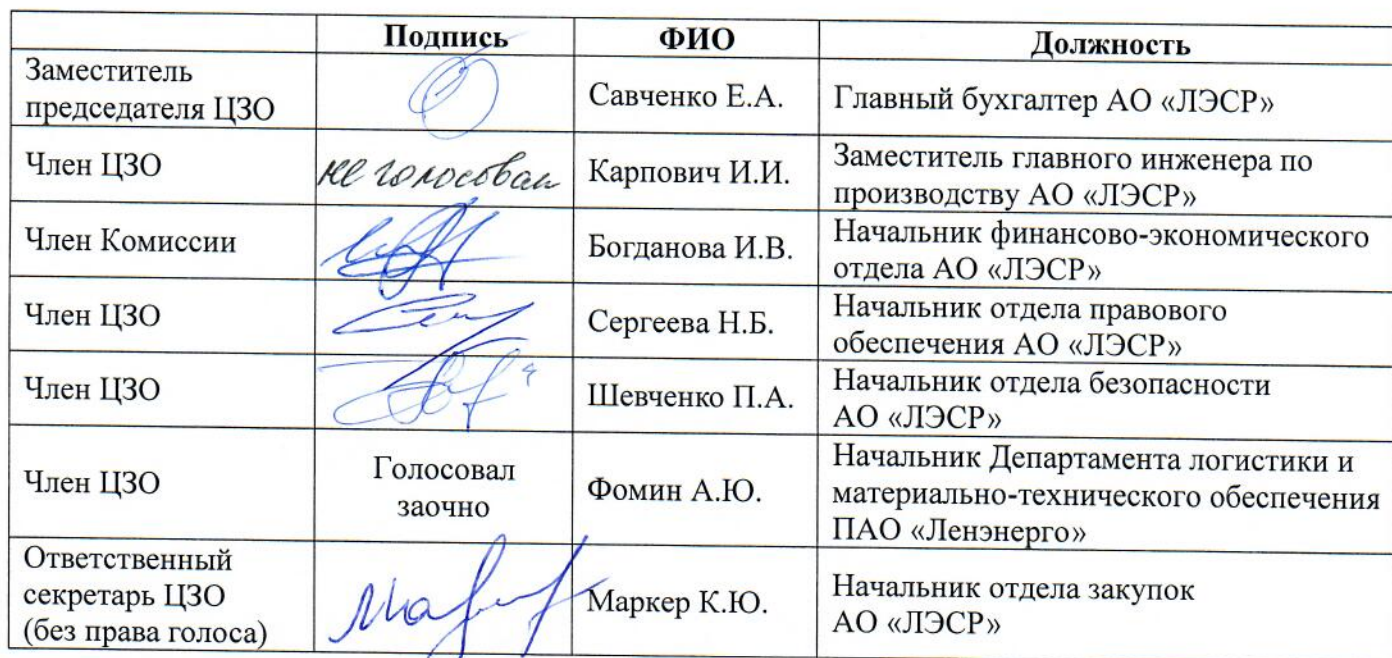 Подпись ФИО Должность
Заместитель
председателя ЦЗО
Савченко Е.А.
Главный бухгалтер АО «ЛЭСР»
Член ЦЗО
не голосовал
Карпович И.И.
Заместитель главного инженера по
производству АО «ЛЭСР»
Член Комиссии
Богданова И.В.
Начальник финансово-экономического
отдела АО «ЛЭСР»
Член ЦЗО
Сергеева Н.Б.
Начальник отдела правового
обеспечения АО «ЛЭСР»
Член ЦЗО
Шевченко П.А.
Начальник отдела безопасности
АО «ЛЭСР»
Член ЦЗО
Голосовал
заочно
Фомин А.Ю.
Начальник Департамента логистики и
материально-технического обеспечения
ПАО «Ленэнерго»
Ответственный
секретарь ЦЗО
(без права голоса)
Маркер К.Ю.
Начальник отдела закупок
АО «ЛЭСР»